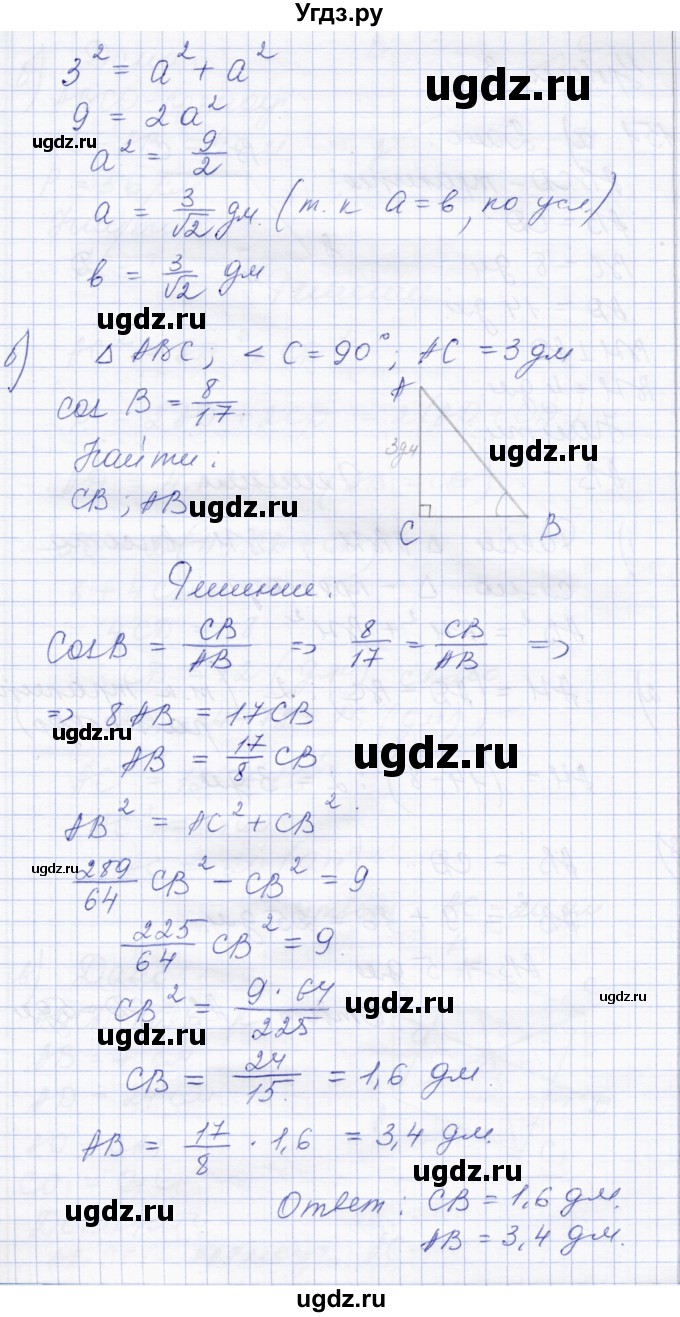 Угдз.ру
3² = a² + a²
ugdz.ru
9 = 2a²
ugdz.ru
a² = 9/2
a = 3/√2 дм. (т. к a = в, по усл.)
в = 3/√2 дм
ugdz.ru
б) △ ABC; < C = 90°; AC = 3 дм
A
cos B = 8/17.
3дм
ugdz.ru
Найти:
CB; AB
ugdz.ru
C B
Решение.
CosB = CB/AB => 8/17 = CB/AB =>
=> 8 AB = 17 CB
ugdz.ru
AB = 17/8 CB.
ugdz.ru
AB² = AC² + CB².
ugdz.ru
289/64 CB² - CB² = 9
225/64 CB² = 9.
CB² = 9 · 64/225
ugdz.ru
ugdz.ru
ugdz.ru
CB = 24/15. = 1,6 дм.
AB = 17/8 · 1,6 = 3,4 дм.
ugdz.ru
Ответ: CB = 1,6 дм.
ugdz.ru
AB = 3,4 дм.
ugdz.ru